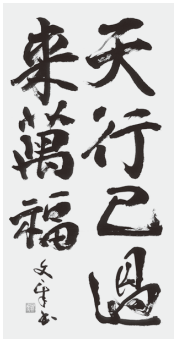 天行已過
來萬福
文峯書